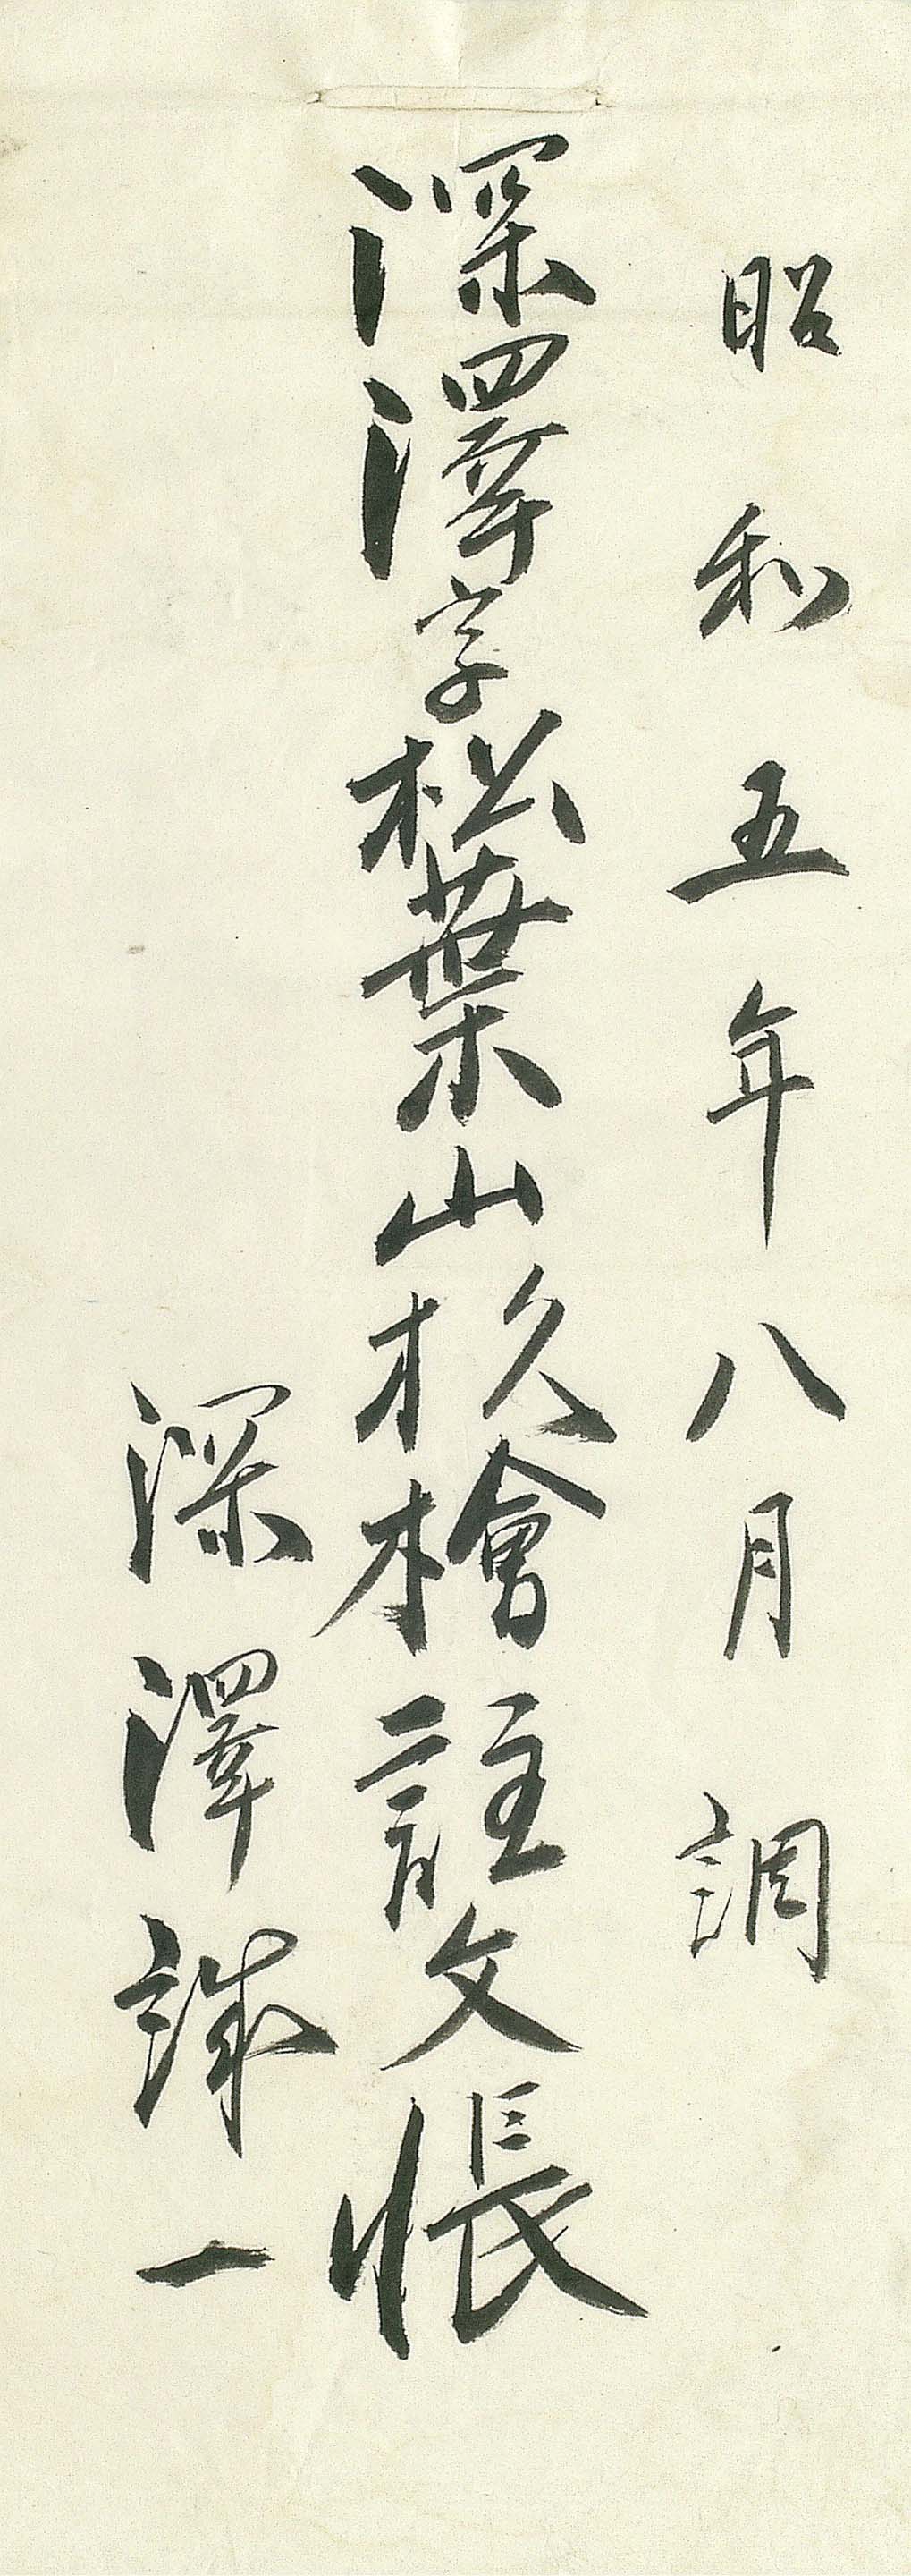 昭和五年八月 調
深澤字松葉山杦檜註文帳
深澤誠一